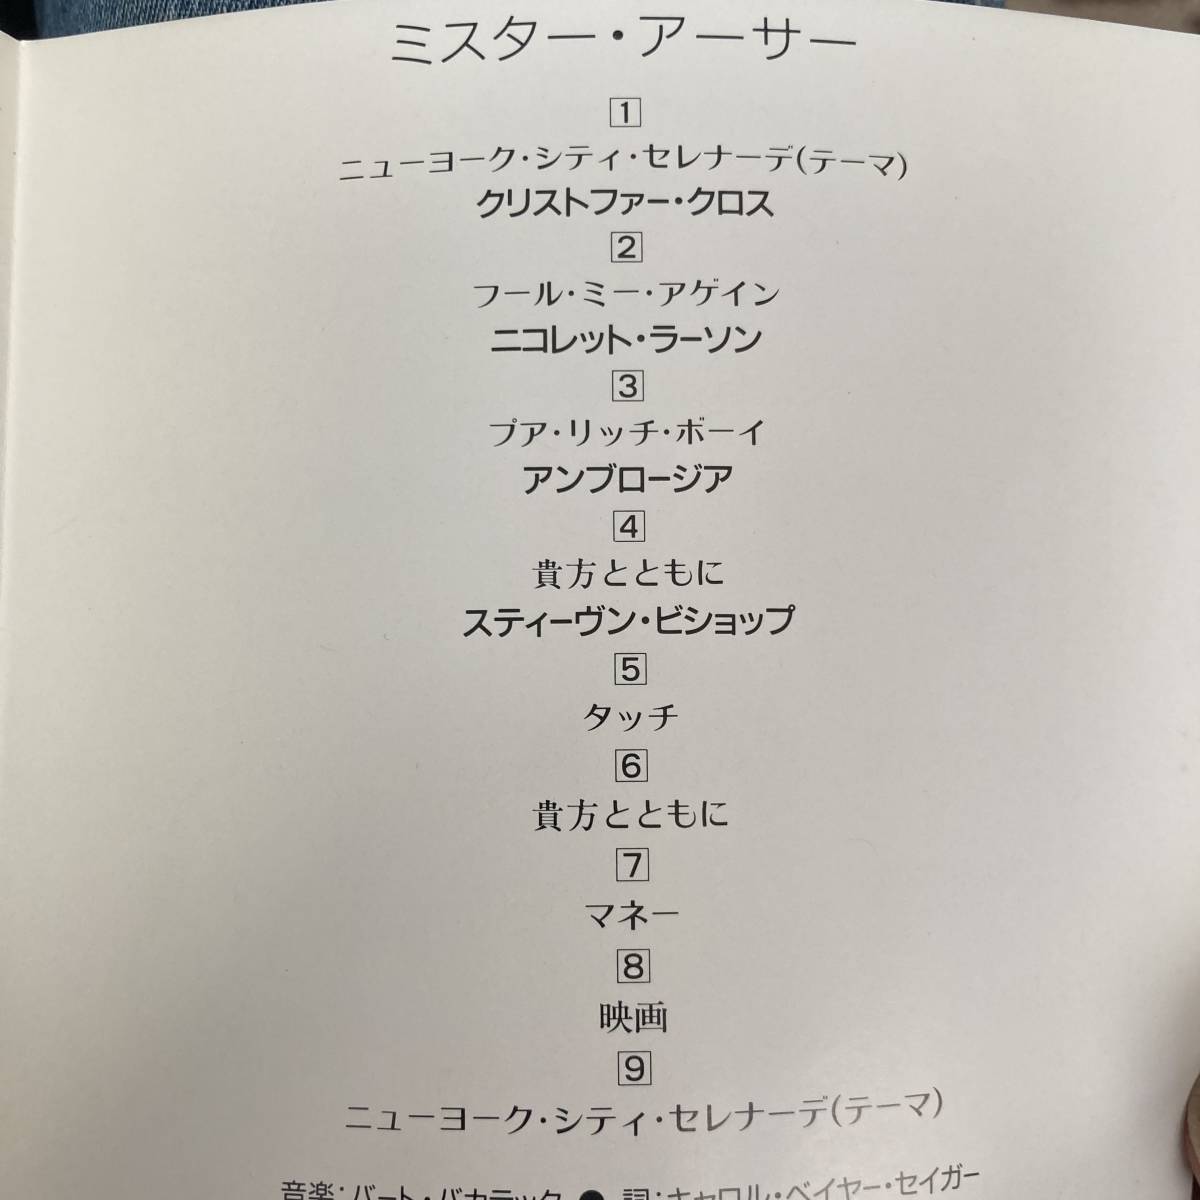 ミスター・アーサー
1
ニューヨーク・シティ・セレナーデ(テーマ)
クリストファー・クロス
2
フール・ミー・アゲイン
ニコレット・ラーソン
3
プア・リッチ・ボーイ
アンブロージア
4
貴方とともに
スティーヴン・ビショップ
5
タッチ
6
貴方とともに
7
マネー
8
映画
9
ニューヨーク・シティ・セレナーデ(テーマ)
音楽:バート・バカラック ● 詞:キャロル・ベイヤー・セイガー